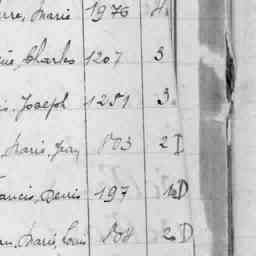 rre, Marie 1976 4
Charles 1207 3
s, Joseph 1251 3
Marie, Jean 803 2 D
rancis, Denis 197 1 D
an, Marie, Louis 808 2 D